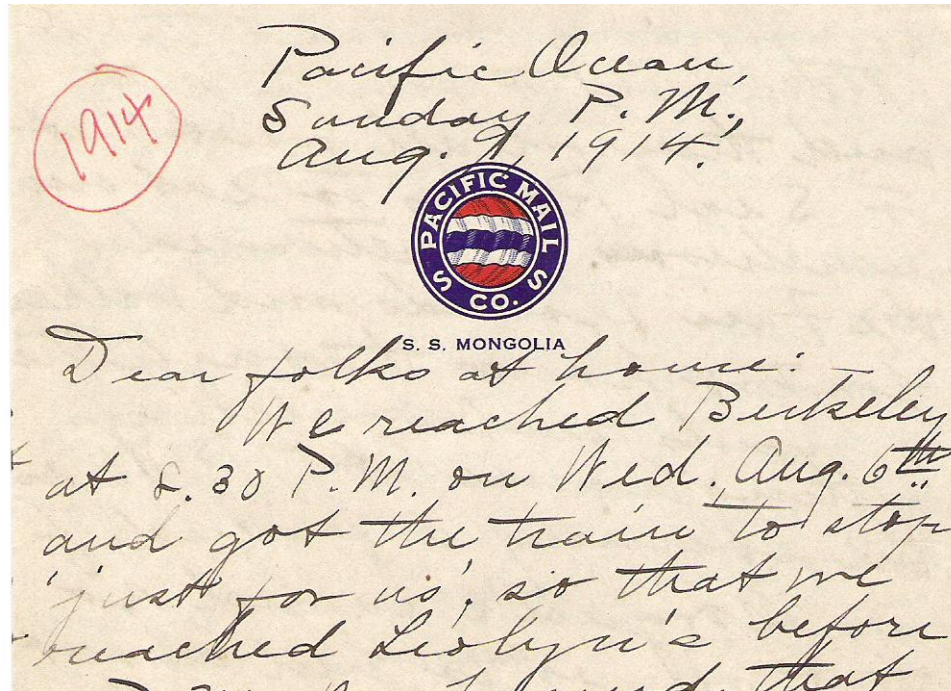 Pacific Ocean,
Sunday P. M.,
Aug. 9, 1914.
1914
PACIFIC MAIL
S S
CO.
S. S. MONGOLIA
Dear folks at home:-
We reached Berkeley
at 8.30 P.M. on Wed., Aug. 6th
and got the train to stop
'just for us', so that we
reached before
that